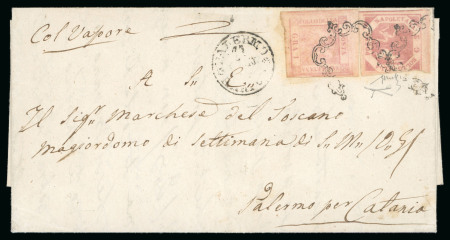 Col Vapore
PALERMO
A S.
Il Sig.r Marchese del Toscano
Magiordomo di Settimana di S. M.
Palermo per Catania